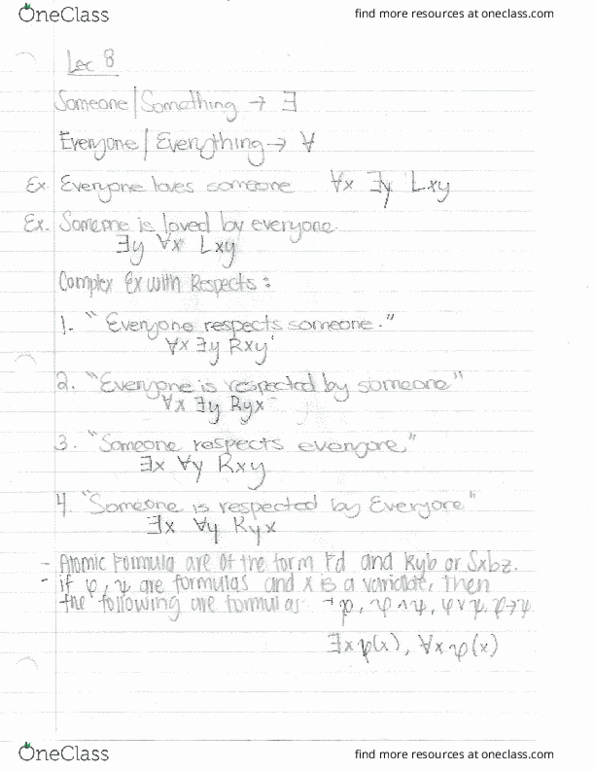 OneClass find more resources at oneclass.com
Lec 8
Someone/Something → ∃
Everyone/Everything → ∀
Ex. Everyone loves someone ∀x ∃y Lxy
Ex. Someone is loved by everyone.
∃y ∀x Lxy
Complex Ex with Respects:
1. "Everyone respects someone."
∀x ∃y Rxy
2. "Everyone is respected by someone"
∀x ∃y Ryx
3. "Someone respects everyone"
∃x ∀y Rxy
4. "Someone is respected by Everyone"
∃x ∀y Ryx
- Atomic Formula are of the form Fd and Ryb or Sxbz.
- if φ, ψ are formulas and x is a variable, then
the following are formulas ¬φ, φ∧ψ, φ∨ψ, φ→ψ
∃xφ(x), ∀xφ(x)
OneClass find more resources at oneclass.com